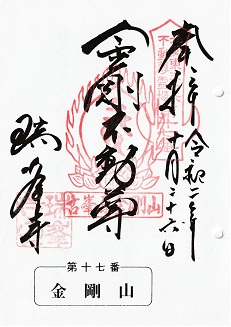 奉拝
令和二年
十月二十六日
金剛不動尊
瑞峯寺
第十七番
金剛山